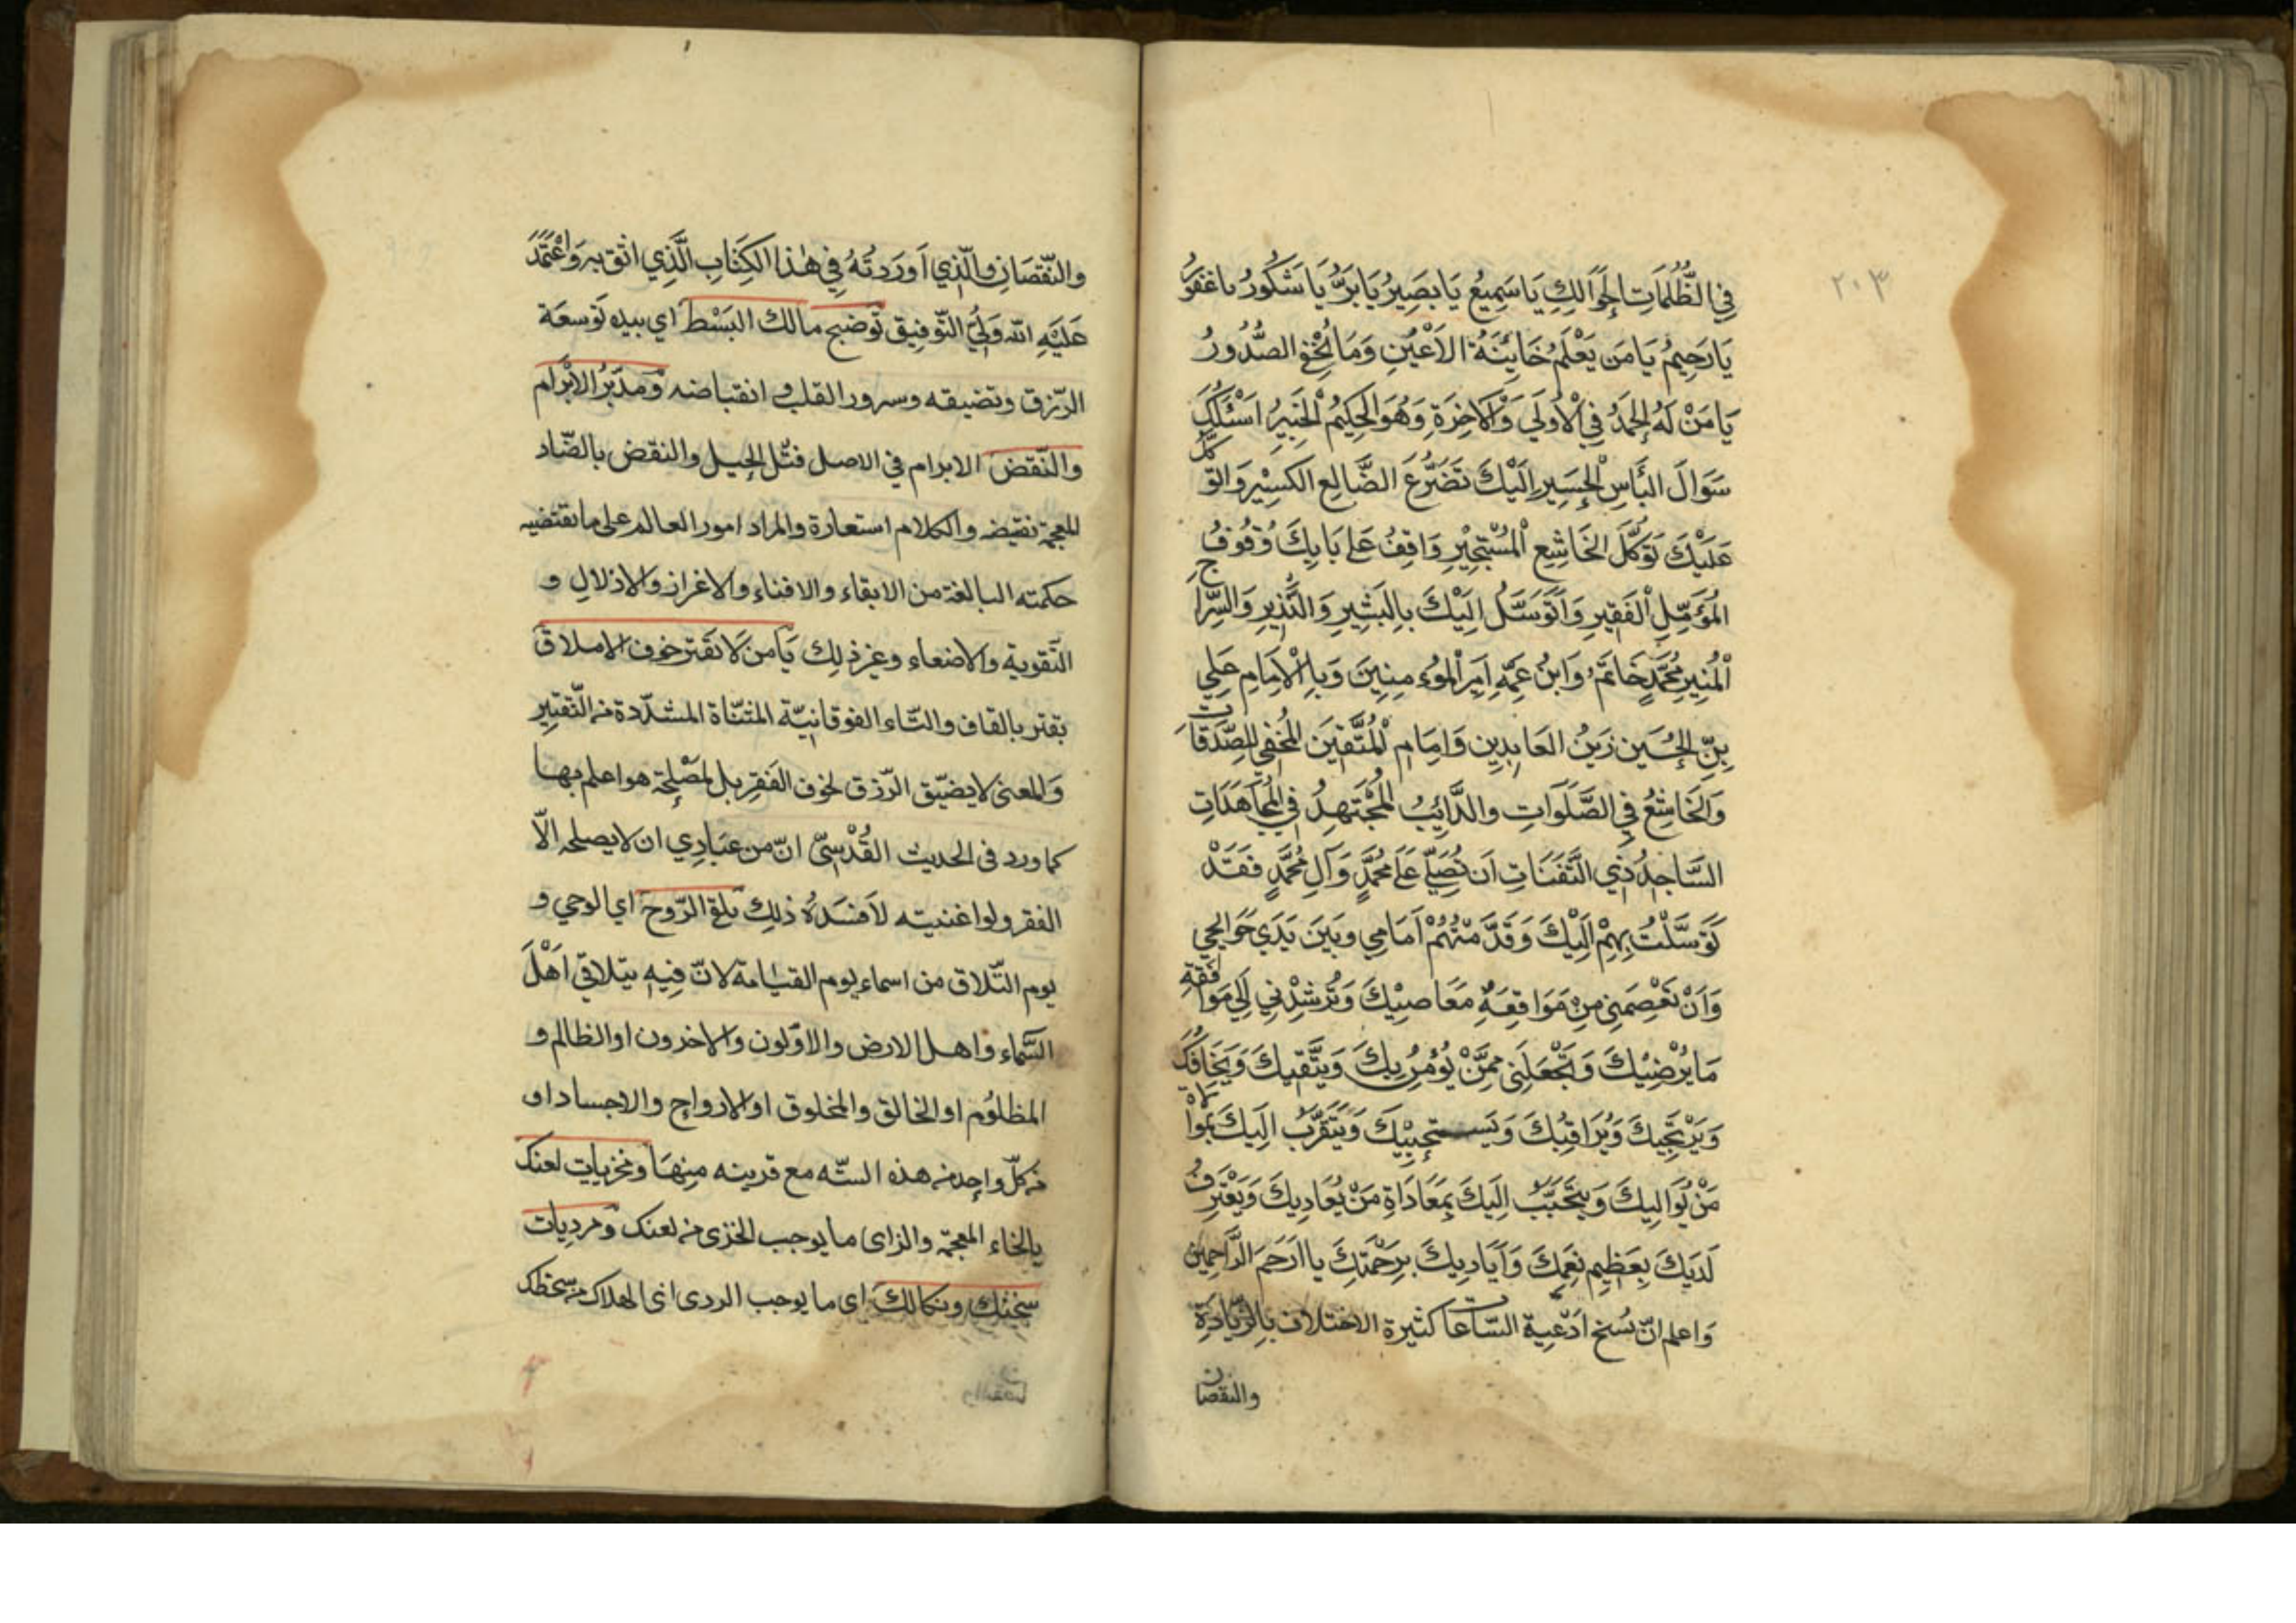 ٢٠٣
فِي الظُّلُمَاتِ الحَوَالِكِ يَا سَمِيعُ يَا بَصِيرُ يَا بَرُّ يَا شَكُورُ يا غفورُ
يَا رَحِيمُ يَا مَن يَعْلَمُ خَايِنَةَ الاَعْيُنِ وَمَا تُخْفِ الصُّدُورُ
يَا مَنْ لَهُ الحَمدُ فِي الْاُولَي وَالْآخِرَةِ وَهُوَ الحَكِيمُ الْخَبِيرُ اَسْئَلُكَ
سَوَالَ البَأسِ الْحَسِيرِ اِلَيْكَ تَضَرُّعَ الضَّالِعِ الكَسِيْرِ وَاتوكّل
عَلَيْكَ تَوَكُّلَ الخَاشِعِ الْمُسْتَجِيْرِ وَاقِفُ عَلى بَابِكَ وُقُوفَ
المُؤَمِّلِ الْفَقِيرِ وَاَتَوَسَّلُ اِلَيْكَ بِالبَشِيرِ وَالنَّذِيرِ وَالسِّراجِ
الْمُنِيرِ مُحَمَّدٍ خَاتَمٍ وَابْنُ عَمِّهِ اَمِيرِ الْمُوءمِنِينَ وَبِالْاِمَامِ عَلِي
بِنِّ الحُسَينِ زَينُ العَابِدِينِ وَاِمَامِ الْمُتَّقِينَ المُخْفِي لِلصَّدَقَاتِ
وَالخَاشِعُ فِي الصَّلَوَاتِ والدَّايِبُ المُجْتَهِدُ فِي المُجَاهَدَاتِ
السَّاجِدُ ذِي الثَّفَنَاتِ اَن تُصَلِّيَ عَلَى مُحَمَّدٍ وَآلِ مُحَمَّدٍ فَقَدْ
تَوَسَّلْتُ بِهِمْ اِلَيْكَ وَقَدَّمْتُهُمْ اَمَامِي وَبَينَ يَدَي حَوَايِجِي
وَاَنْ تَعْصِمَنِي مِنْ مَوَاقِعَةِ مَعَاصِيْكَ وَتُرْشِدْنِي اِلَي مَوافقة
مَا يُرْضِيْكَ وَتَجْعَلَنِي مِمَّنْ يُؤْمِنُ بِكَ وَيَتَّقِيكَ وَيَخَافُكَ
وَيَرْتَجِيكَ وَيُرَاقِبُكَ وَيَستَحيِيْكَ وَيَتَقَرَّبُ اِلَيكَ بمُوالاة
مَنْ يُوَالِيكَ وَيَتَحَبَّبُ اِلَيكَ بِمَعَادَاةِ مَنْ يُعَادِيكَ وَيَعْتَرِفُ
لَدَيكَ بِعَظِيمِ نِعَمِكَ وَاَيَادِيكَ بِرَحْمَتِكَ يا اَرْحَمَ الرَّاحِمِين
وَاعلم انّ نُسخ اَدْعِية السّاعات كثيرة الاختلاف بِالزِّيَادَةِ
والنقصان
والنّقصَانِ والّذِي اَورَدتُهُ فِي هٰذا الكِتَابِ الَّذِي اثق بِه وَاَعْتَمَدَ
عَلَيْهِ الله وَلِيُّ التّوفِيق تَوضيح مالك البَسْط اي بيده تَوسعَة
الرّزق وتضيقه وسرور القلب وانقباضه وَمدَبّرُ الاِبْرَام
والنّقض الابرام في الاصل فتّل الحبل والنقض بالضّاد
المعجمة نقيضه والكلام استعارة والمراد امور العالم على ما تقتضيه
حكمته البالغة من الابقاء والافناء والاعزاز والاذلالِ و
التّقوية والاضعاء وغير ذلِك يَا مَن لَا يَقتر خوف الاملاق
يقتر بالقاف والتّاء الفوقانيّة المثنّاة المشدّدة من التّقتِير
وَالمعنى لا يضيّق الرّزق لخوف الفَقرِ بل لمَصْلِحَة هو اعلم بها
كما ورد في الحديث القُدْسِيّ انّ من عبَادِي ان لا يصلحه الّا
الفقر ولو اغنيته لاَفسَدَهُ ذلِك مُلقِ الرّوحَ اي الوحي و
يوم التّلاق من اسماء يوم القيامة لانّ فِيهِ يتلاقي اَهْلَ
السَّماء واهل الارض والاوّلون والاخرون او الظالم و
المظلُوم او الخالق والمخلوق او الارواح والاجساد او
من كلّ واحد من هذه الستّه مع قرينه مِنهَا ومُخزيات لعنك
بالخاء المعجمة والزاى ما يوجب الخزى من لعنك وَمردِيات
سخثك ونكالك اى ما يوجب الردى اى الهلاك من سخطك